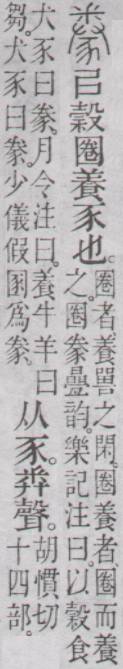 豢㠯穀圈養豕也。
圈者、養嘼之閑。圈養者、圈而養
之。圈豢疊韵。樂記注曰。以穀食
犬豕曰豢。月令注曰。養牛羊曰
芻。犬豕曰豢。少儀假圂爲豢。
从豕。𢍏聲。
胡慣切
十四部。